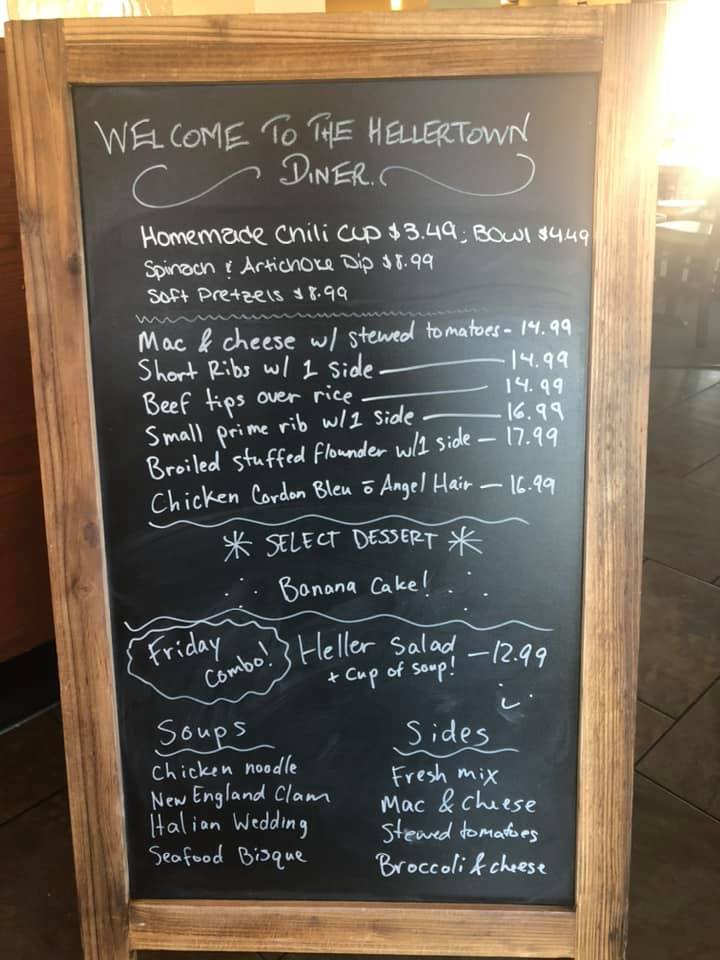 WELCOME TO THE HELLERTOWN
DINER.
Homemade Chili Cup $3.49; Bowl $4.49
Spinach & Artichoke Dip $8.99
Soft Pretzels $8.99
Mac & cheese w/ stewed tomatoes - 14.99
Short Ribs w/ 1 side — 14.99
Beef tips over rice — 14.99
Small prime rib w/1 side — 16.99
Broiled stuffed flounder w/1 side — 17.99
Chicken Cordon Bleu ō Angel Hair — 16.99
* SELECT DESSERT *
Banana Cake!
Friday Combo!
Heller Salad — 12.99
+ cup of soup!
Soups
Chicken noodle
New England Clam
Italian Wedding
Seafood Bisque
Sides
Fresh mix
Mac & cheese
Stewed tomatoes
Broccoli & cheese